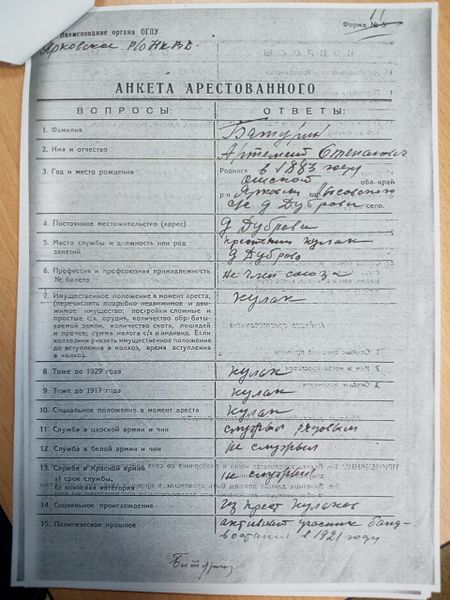 11
Наименование органа ОГПУ
Форма № 5
Ярковское Р/О НКВД
АНКЕТА АРЕСТОВАННОГО
ВОПРОСЫ: ОТВЕТЫ:
1. Фамилия Батурин
2. Имя и отчество Артемий Степанович
3. Год и место рождения Родился в 1883 году
Омской обл. край
р-н Ярковск
с/с д Дуброви село.
4. Постоянное местожительство (адрес) д Дуброви
5. Место службы и должность или род крестьян кулак
занятий д Дуброво
6. Профессия и профсоюзная принадлежность не член союза
№ билета
7. Имущественное положение в момент ареста, кулак
(перечислить подробно недвижимое и дви-
жимое имущество: постройки сложные и
простые с/х. орудия, количество обрабаты-
ваемой земли, количество скота, лошадей
и прочее; сумма налога с/х и индивид. Если
колхозник указать имущественное положение
до вступления в колхоз, время вступления
в колхоз.
8. Тоже до 1929 года кулак
9. Тоже до 1917 года кулак
10. Социальное положение в момент ареста кулак
11. Служба в царской армии и чин служил рядовым
12. Служба в белой армии и чин не служил
13. Служба в Красной армии не служил
а) срок службы,
б) воинская категория
14. Социальное происхождение из крест кулаков
15. Политическое прошлое активный участник банд-
восстания в 1921 году